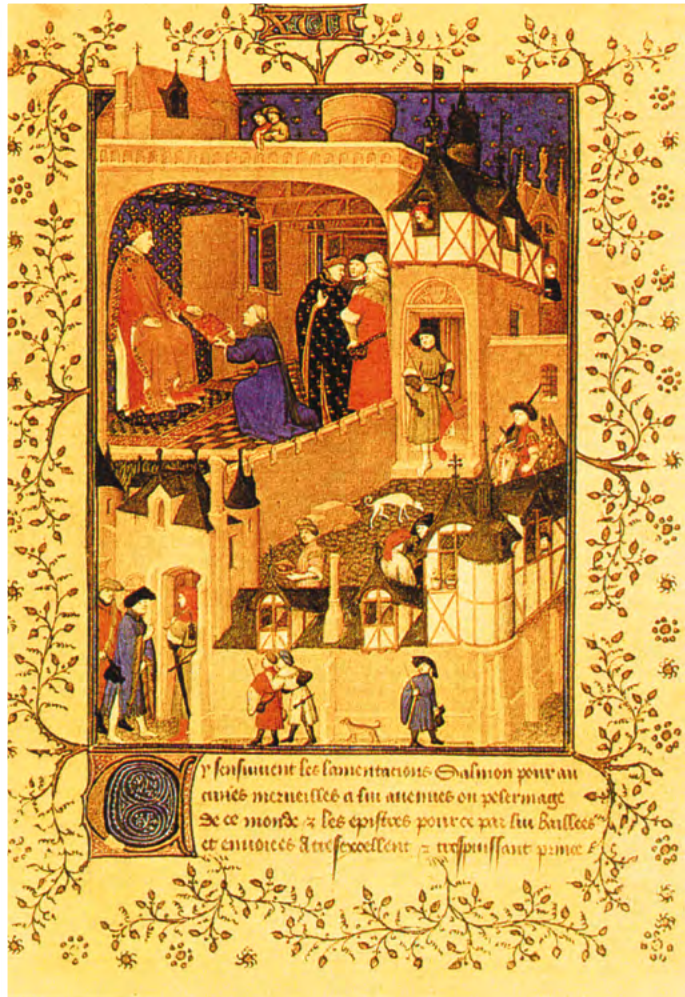 XIII
Cy sensuivent les lamentacions Salmon pour au
cunes merveilles a lui avenues ou pelermage
de ce monde & les epistres pource par lui baillees
et envoices A tresexcellent & trespuissant prince